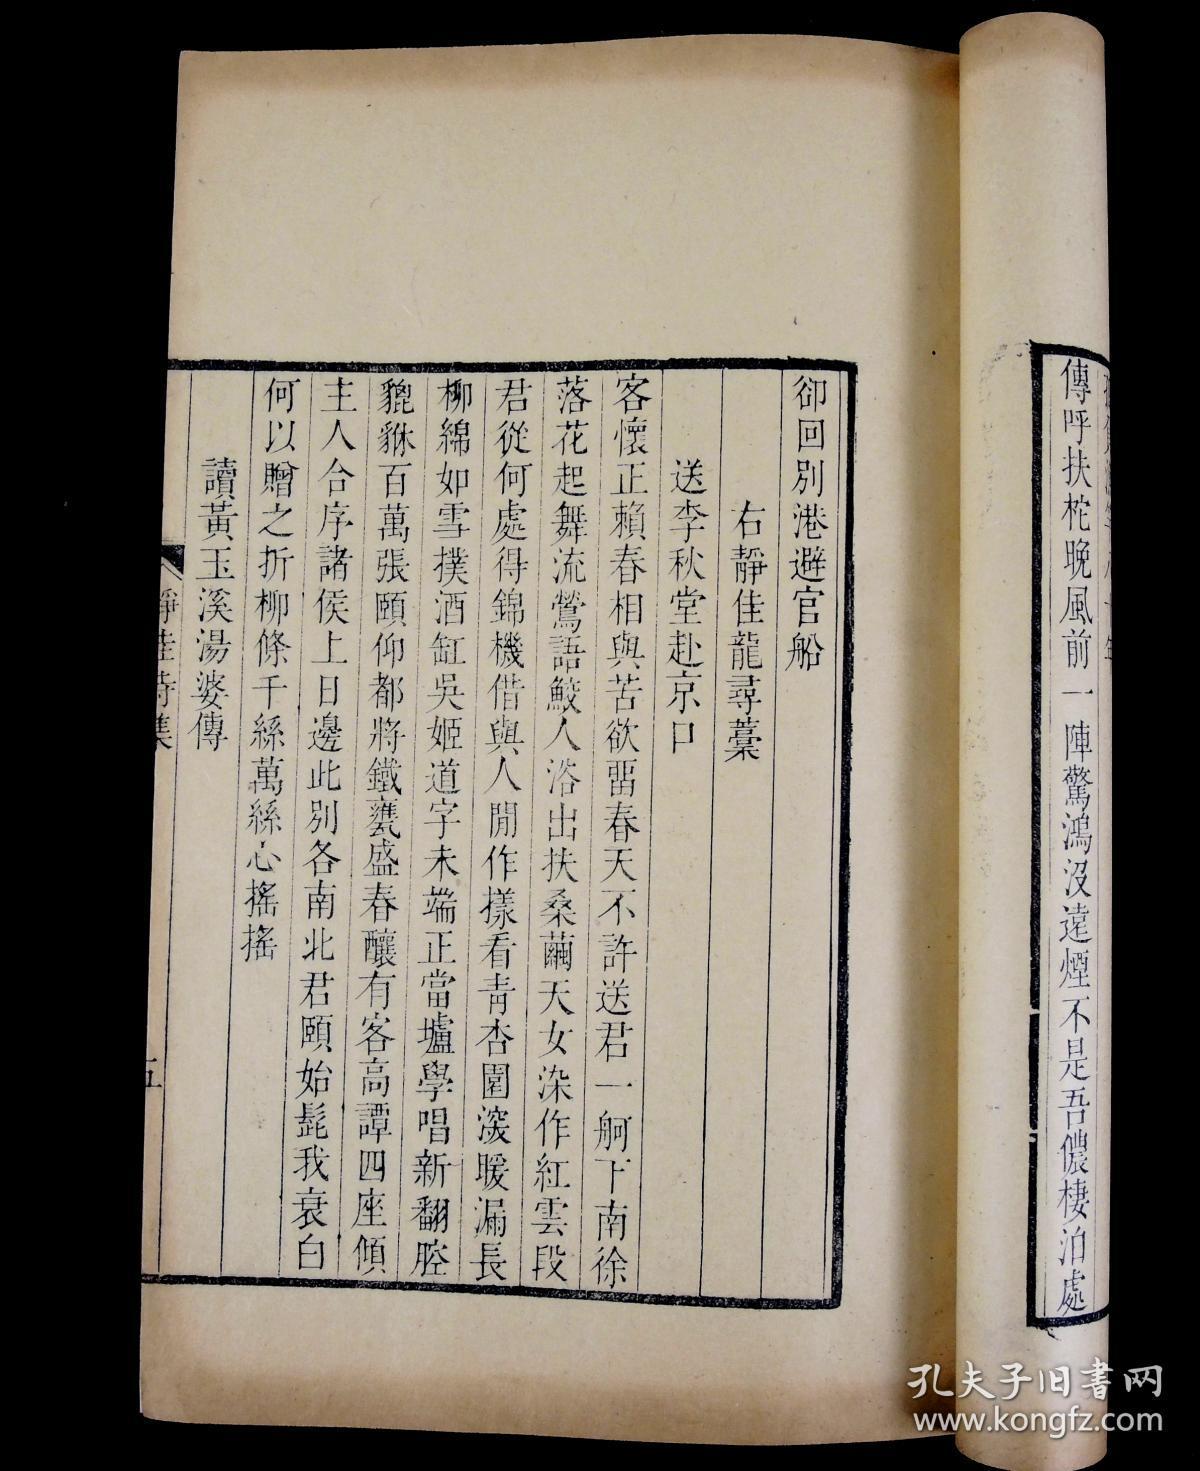 傳呼扶柁晚風前一陣驚鴻沒遠煙不是吾儂棲泊處
卻回別港避官船
右靜佳龍尋藁
送李秋堂赴京口
客懷正賴春相與苦欲畱春天不許送君一舸下南徐
落花起舞流鶯語鮫人浴出扶桑繭天女染作紅雲段
君從何處得錦機借與人閒作樣看青杏園深暖漏長
柳綿如雪撲酒缸吳姬道字未端正當壚學唱新翻腔
貔貅百萬張頤仰都將鐵甕盛春釀有客高譚四座傾
主人合序諸侯上日邊此別各南北君頤始髭我衰白
何以贈之折柳條千絲萬絲心搖搖
讀黃玉溪湯婆傳
靜佳詩集
五
孔夫子旧书网
www.kongfz.com